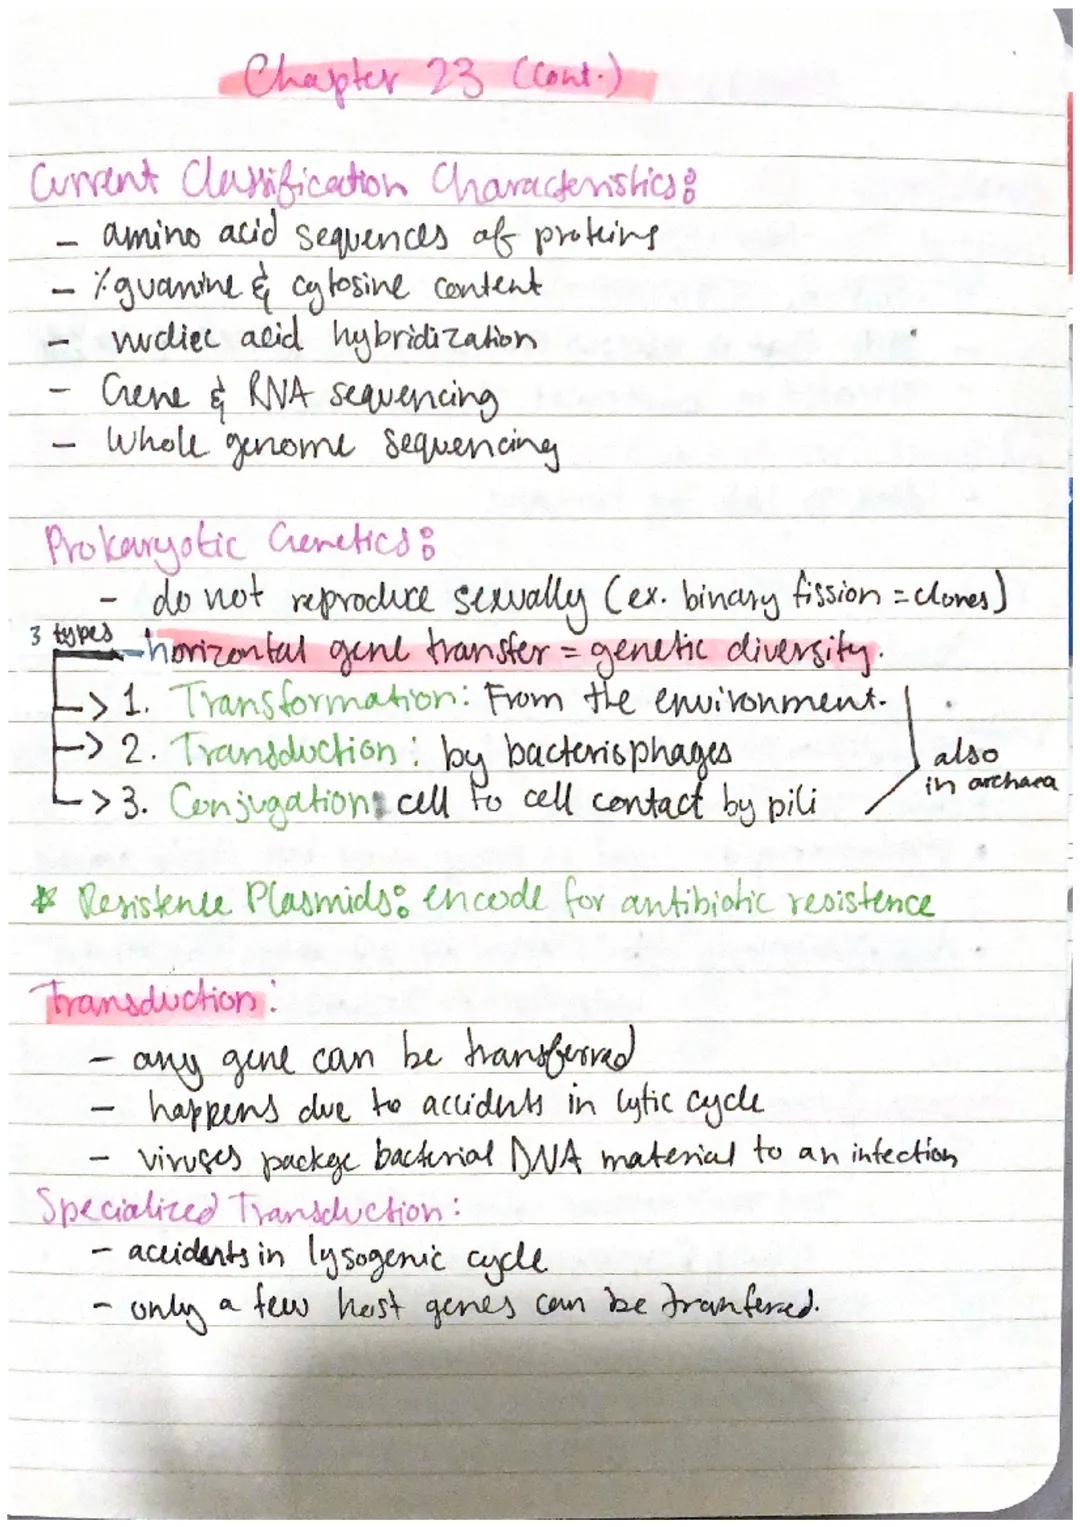 Chapter 23 (Cont.)
Current Classification Characteristics:
- amino acid sequences of proteins
- % guanine & cytosine content
- nucliec acid hybridization
- Gene & RNA sequencing
- Whole genome sequencing
Prokaryotic Genetics:
- do not reproduce sexually (ex. binary fission = clones)
3 types - horizontal gene transfer = genetic diversity.
-> 1. Transformation: From the environment.
-> 2. Transduction: by bacteriophages
-> 3. Conjugation: cell to cell contact by pili
also
in archaea
* Resistence Plasmids: encode for antibiotic resistence
Transduction:
- any gene can be transferred
- happens due to accidents in lytic cycle
- viruses packge bacterial DNA material to an infection
Specialized Transduction:
- accidents in lysogenic cycle
- only a few host genes can be tranferred.